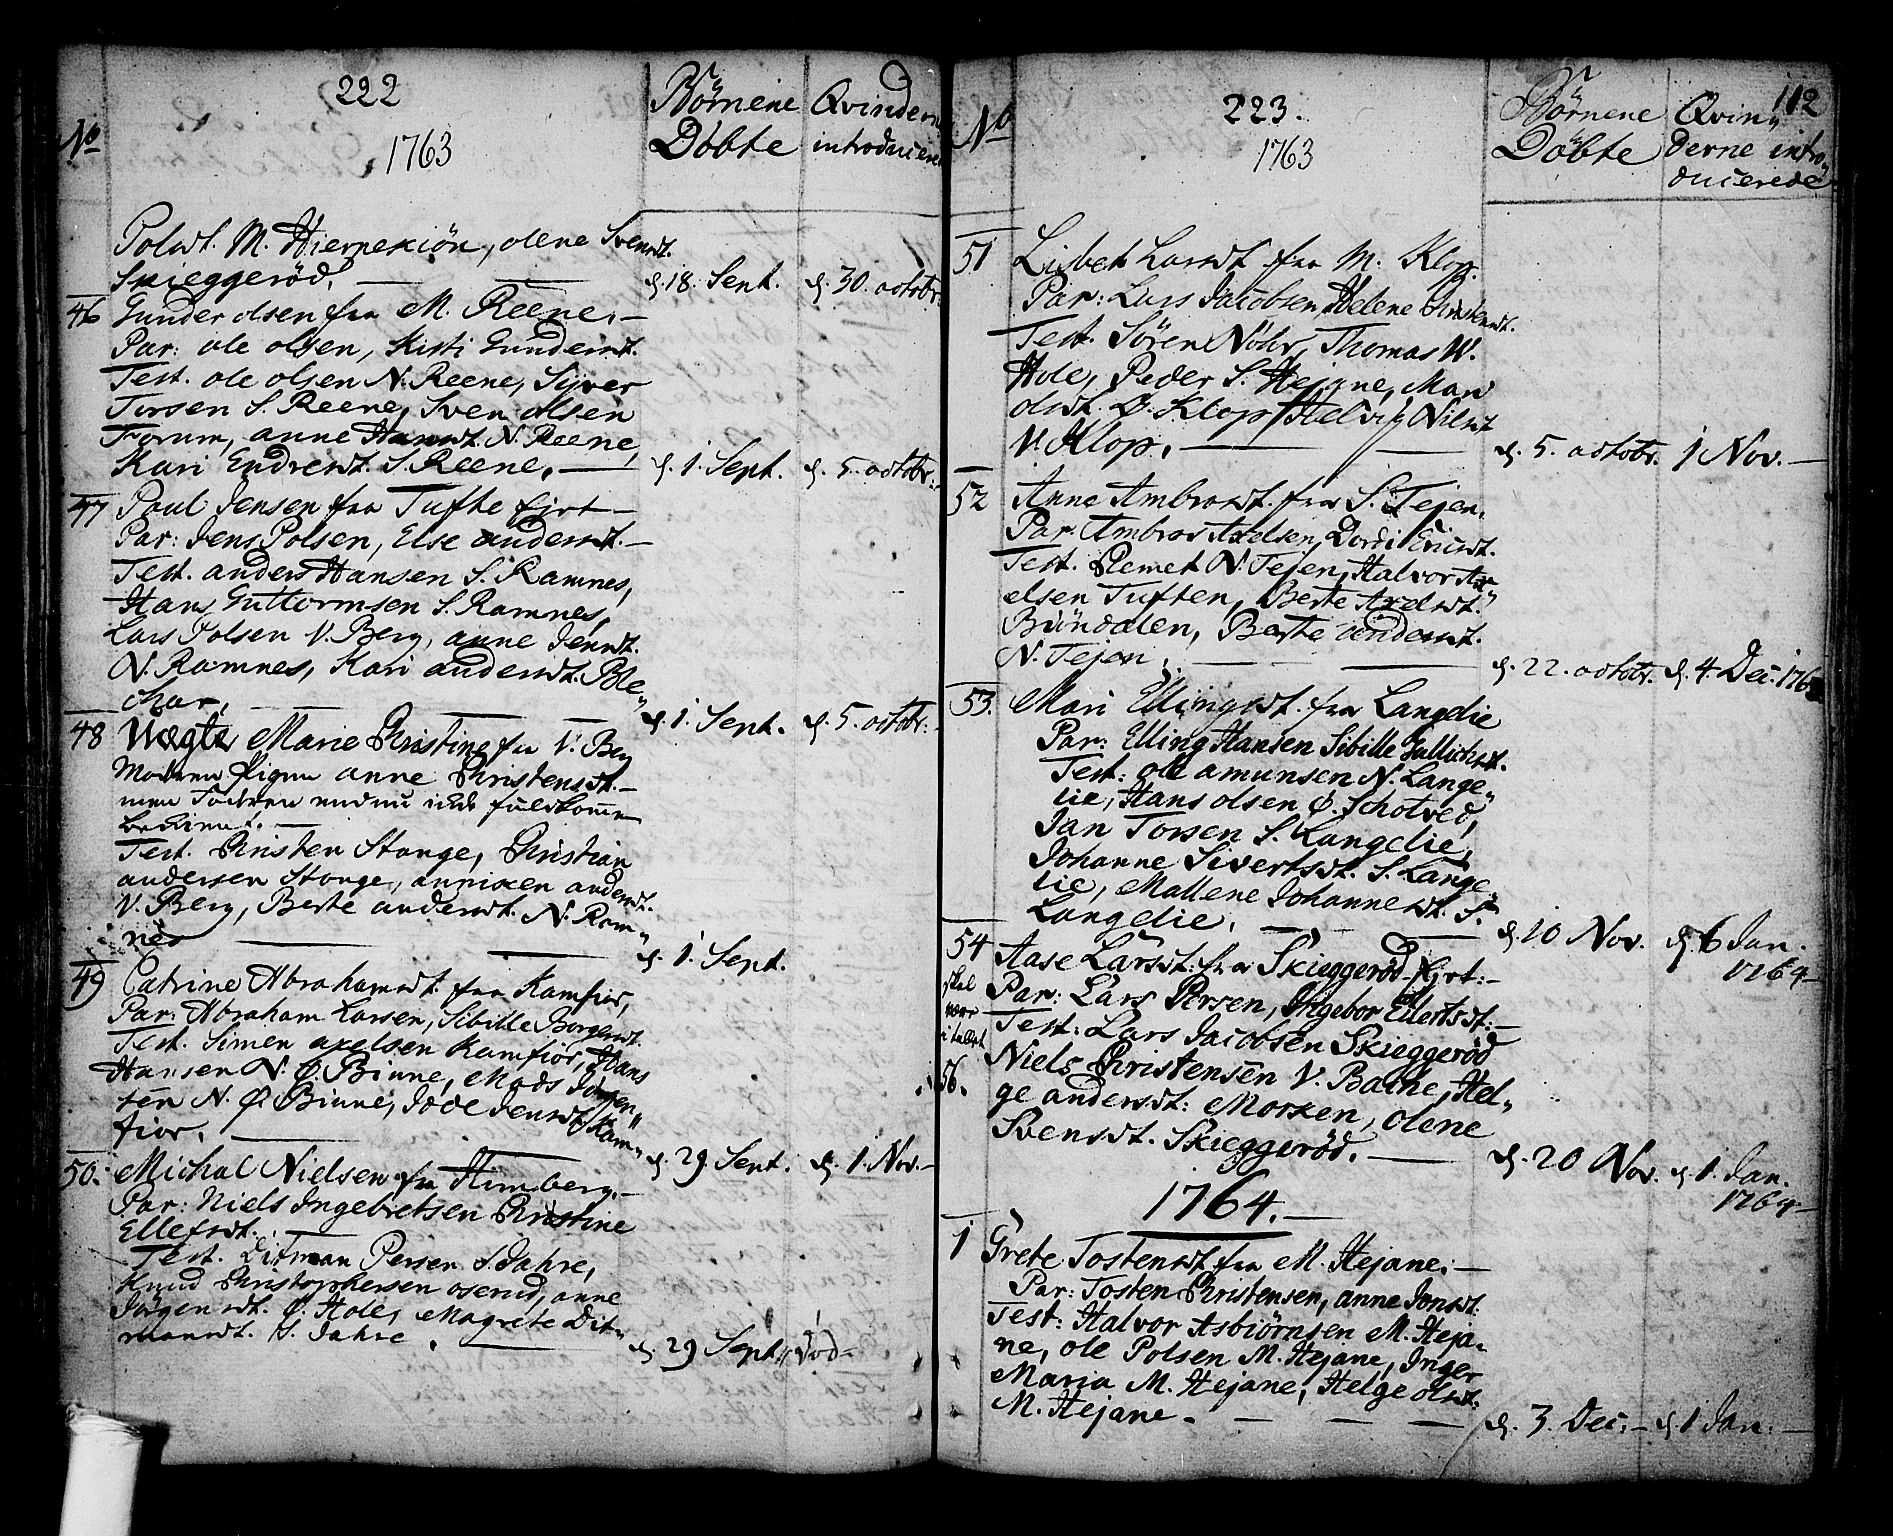 222
No
1763
Börnene
Döbte
Qvinderne
introducerede
Polsdt. M. Hiernexiön, olene Svensdt.
Skieggeröd. d. 18. Sept. d. 30. octobr.
46 Gunder olsen fra M. Reene.
Par: ole olsen, Kisti Gundersdt.
Test. ole olsen N. Reene, Syver
Torsen S. Reene, Sven olsen
Forum, anne Hansdt. N. Reene,
Kari Endresdt. S. Reene. d. 1. Sept. d. 5. octobr.
47 Poul Jensen fra Tufte Ejet
Par: Jens Polsen, Else andersdt.
Test. anders Hansen S. Ramnes,
Hans Guttormsen S. Ramnes,
Lars Polsen V. Berg, anne Jensdt.
N. Ramnes, Kari andersdt. Ble„
char. d. 1. Sept. d. 5. octobr.
48 Uægte Marie Christine fra V. Berg
Moderen Pigen anne Christensdt.
men Faderen endnu icke fuldkommen
bekiendt.
Test. Christen Stange, Christian
andersen Stange, annixen andersdt.
V. Berg, Berte andersdt. N. Ram„
nes d. 1. Sept.
49 Catrine Abrahamsdt. fra Kamfior,
Par: Abraham Larsen, Sibille Borgersdt.
Test. Simen axelsen Kamfior, Hans
Hansen N. Ø. Binne, Mads Jörgen„
sen N. Ø. Binne, Jode Jensdt. Kam„
fior. d. 29. Sept. d. 1. Nov.
50. Michal Nielsen fra Himberg.
Par: Niels Ingebretsen Christine
Ellefsdt.
Test. Ditman Persen S. Jahre,
Knud Christophersen oserud, anne
Jörgensdt. Ø. Hole, Magrete Dit„
mansdt. S. Jahre. d. 29 Sept. död
223.
112
No
1763
Börnene
Döbte
Qvin„
derne intro„
ducerede
51 Lisbet Larsdt fra M. Klop.
Par: Lars Jacobsen, Helene Christensdt.
Test. Sören Nöhr, Thomas W.
Hole, Peder S. Hejane, Mari
olsdt. Ø. Klop, Helvig Nilsdt
V. Klop. d. 5. octobr. 1 Nov.
52 Anne Ambrosdt. fra S. Tejen.
Par: Ambros Axelsen, Dordi Ericsdt.
Test. Clemet N. Tejen, Halvor Ax„
elsen Tuften, Berte Axelsdt.
Bündalen, Berte andersdt.
N. Tejen. d. 22. octobr. d. 4. Dec. 1763
53. Mari Ellingsdt. fra Langelie
Par: Elling Hansen Sibille Gullichsdt.
Test: ole amunsen N. Lange„
lie, Hans olsen Ø. Schotved,
Jan Torsen S. Langelie,
Johanne Sivertsdt. S. Lange„
lie, Mallene Johannesdt. S.
Langelie. d. 10 Nov. d. 6 Jan.
1764
54 Aase Larsdt: fra Skieggeröd Ejet:
skal
være
i tallet
56.
Par: Lars Persen, Ingebor Ellertsdt:
Test: Lars Jacobsen Skieggeröd
Niels Christensen V. Bache, Hel„
ge andersdt: Morken, olene
Svensdt. Skieggeröd. d. 20 Nov. d. 1. Jan.
1764
1764.
1 Grete Tostensdt fra M. Hejane.
Par: Tosten Christensen, anne Jonsdt.
Test: Halvor Asbiörnsen M. Heja„
ne, ole Polsen M. Hejane, Inger
Maria M. Hejane, Helge olsdt.
M. Hejane. d. 3. Dec: d. 1 Jan.